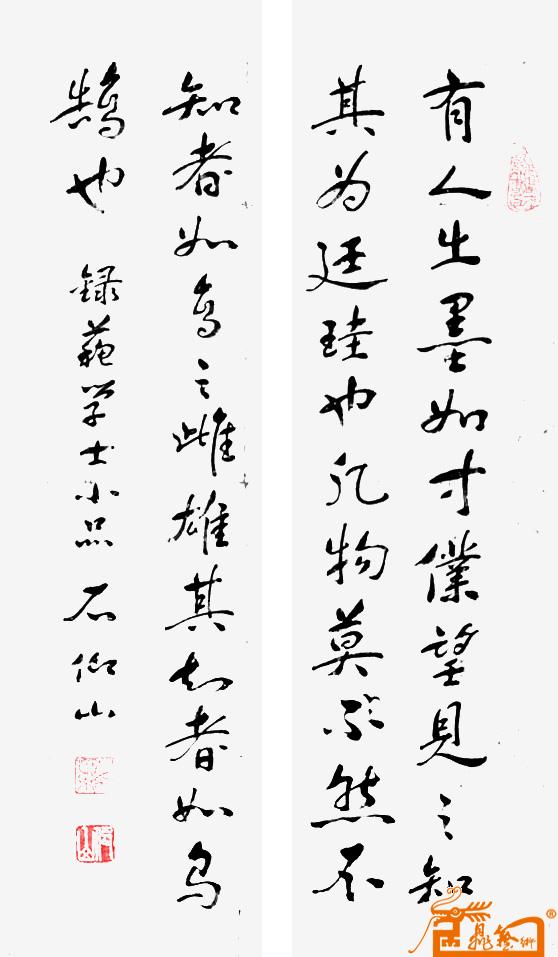 有人出墨如寸僕望見之知
其为廷珪也凡物莫不然不
知者如烏之雌雄其知者如乌
鵠也 録蘇学士小品 石仰山